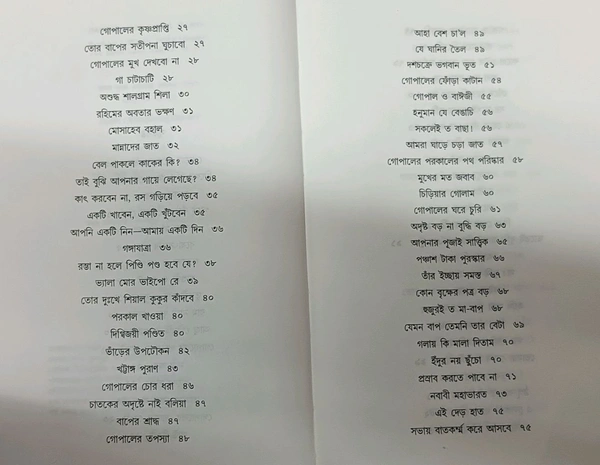 গোপালের কৃষ্ণপ্রাপ্তি ২৭
তোর বাপের সতীপনা ঘুচাবো ২৭
গোপালের মুখ দেখবো না ২৮
গা চাটাচাটি ২৮
অশুদ্ধ শালগ্রাম শিলা ৩০
রহিমের অবতার ভক্ষণ ৩১
মোসাহেব বহাল ৩১
মান্নাদের জাত ৩২
বেল পাকলে কাকের কি? ৩৪
তাই বুঝি আপনার গায়ে লেগেছে? ৩৪
কাৎ করবেন না, রস গড়িয়ে পড়বে ৩৫
একটি খাবেন, একটি খুঁটবেন ৩৫
আপনি একটি নিন—আমায় একটি দিন ৩৬
গঙ্গাযাত্রা ৩৬
রম্ভা না হলে পিণ্ডি পণ্ড হবে যে? ৩৮
ভ্যালা মোর ভাইপো রে ৩৯
তোর দুঃখে শিয়াল কুকুর কাঁদবে ৪০
পরকাল খাওয়া ৪০
দিগ্বিজয়ী পণ্ডিত ৪০
ভাঁড়ের উপঢৌকন ৪২
খট্টাঙ্গ পুরাণ ৪৩
গোপালের চোর ধরা ৪৬
চাতকের অদৃষ্টে নাই বলিয়া ৪৭
বাপের শ্রাদ্ধ ৪৭
গোপালের তপস্যা ৪৮
আহা বেশ চা'ল ৪৯
যে ঘানির তৈল ৪৯
দশচক্রে ভগবান ভূত ৫১
গোপালের ফোঁড়া কাটান ৫৪
গোপাল ও বাঈজী ৫৫
হনুমান যে বেঙাচি ৫৬
সকলেই ত বাছা! ৫৬
আমরা ঘাড়ে চড়া জাত ৫৭
গোপালের পরকালের পথ পরিষ্কার ৫৮
মুখের মত জবাব ৬০
চিড়িয়ার গোলাম ৬০
গোপালের ঘরে চুরি ৬১
অদৃষ্ট বড় না বুদ্ধি বড় ৬৩
আপনার পূজাই সাত্ত্বিক ৬৫
পঞ্চাশ টাকা পুরস্কার ৬৬
তাঁর ইচ্ছায় সমস্ত ৬৭
কোন বৃক্ষের পত্র বড় ৬৮
হুজুরই ত মা-বাপ ৬৮
যেমন বাপ তেমনি তার বেটা ৬৯
গলায় কি মালা দিতাম ৭০
ইঁদুর নয় ছুঁচো ৭০
প্রস্রাব করতে পাবে না ৭১
নবাবী মহাভারত ৭৩
এই দেড় হাত ৭৫
সভায় বাতকর্ম্ম করে আসবে ৭৫